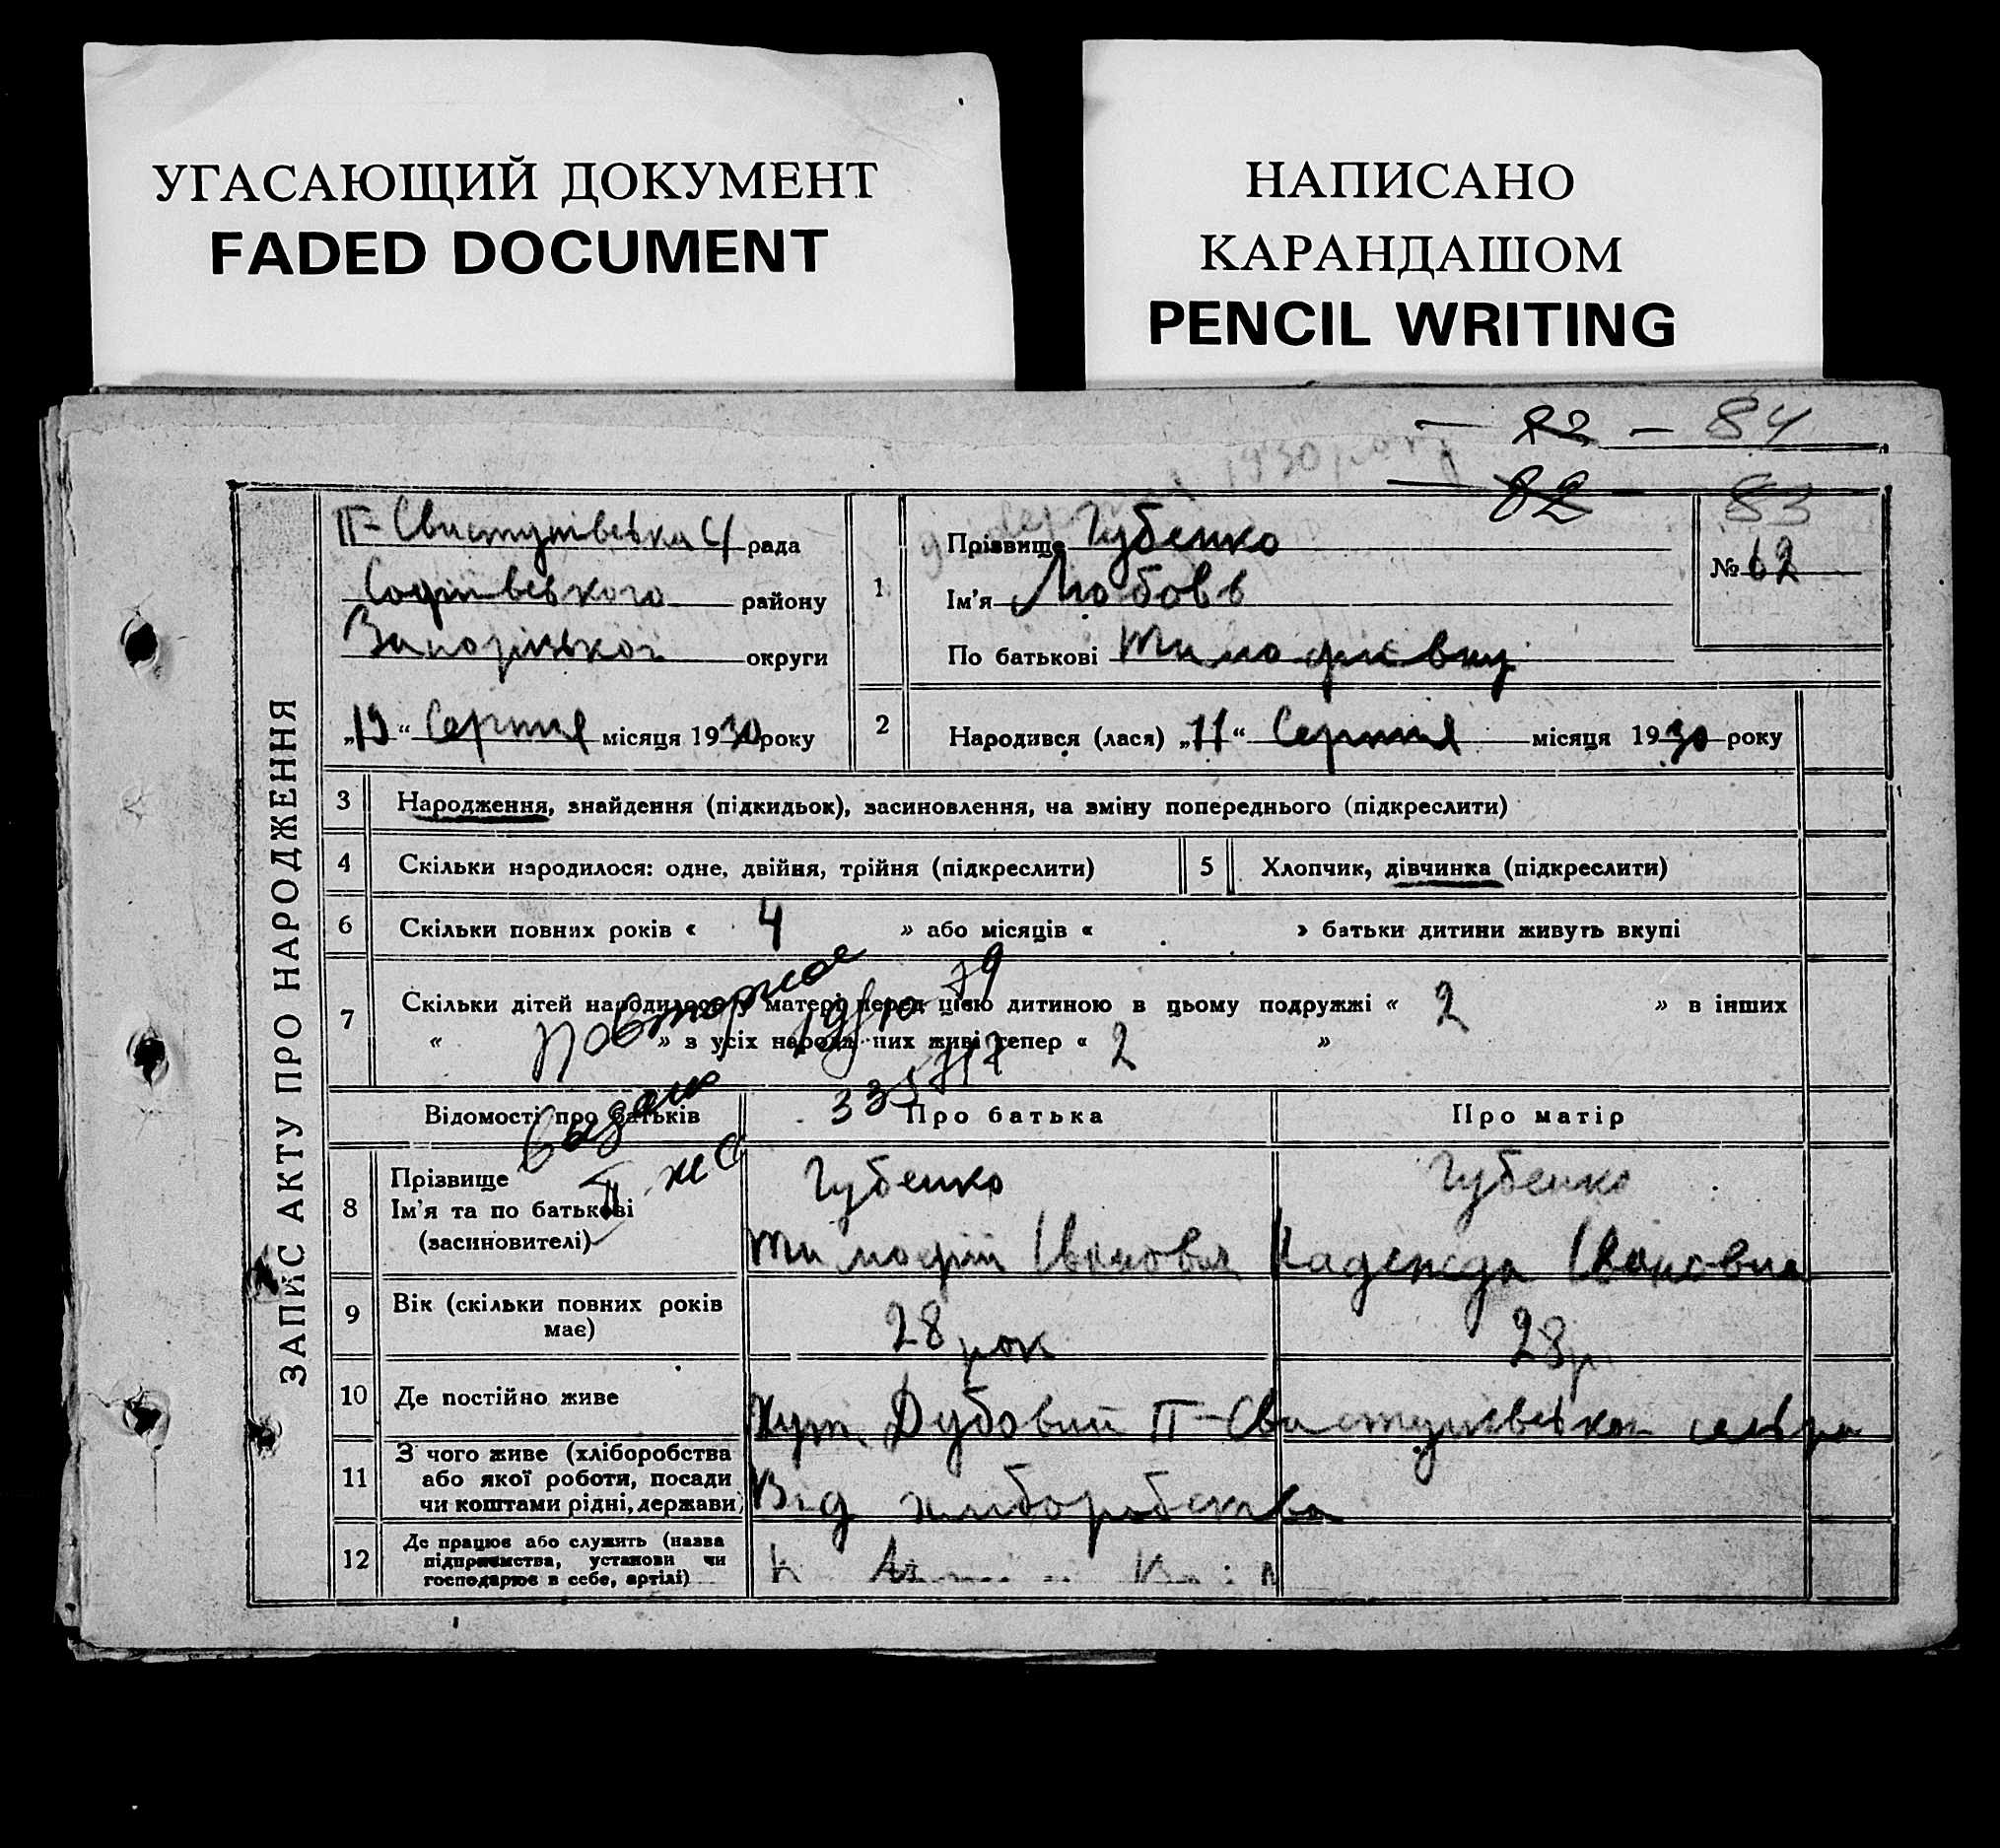 УГАСАЮЩИЙ ДОКУМЕНТ
FADED DOCUMENT
НАПИСАНО
КАРАНДАШОМ
PENCIL WRITING
— 82 — 84
— 82 — 83
1930 року
ЗАПИС АКТУ ПРО НАРОДЖЕННЯ
П-Свистунівська С/ рада
Софіївського району
Запорізької округи
„19“ Серпня місяця 1930 року
1 Прізвище Губенко
Ім'я Любовь
По батькові Тимофієвну
№ 62
2 Народився (лася) „11“ Серпня місяця 1930 року
3 Народження, знайдення (підкидьок), засиновлення, на зміну попереднього (підкреслити)
4 Скільки народилося: одне, двійня, трійня (підкреслити)
5 Хлопчик, дівчинка (підкреслити)
6 Скільки повних років « 4 » або місяців « » батьки дитини живуть вкупі
7 Скільки дітей народилося у матері перед цією дитиною в цьому подружжі « 2 » в інших
« » в усіх народж них живі тепер « 2 »
Повторное
19/10-79
Выдано
335717
II жс
Відомості про батьків
Про батька
Про матір
8 Прізвище
Ім'я та по батькові
(засиновителі)
Губенко
Тимофій Іванович
Губенко
Надежда Івановна
9 Вік (скільки повних років
має)
28 рок
28 р.
10 Де постійно живе
Хут. Дубовий П-Свистунівської сельра
11 З чого живе (хліборобства
або якої роботи, посади
чи коштами рідні, держави)
Від хліборобства
12 Де працює або служить (назва
підприємства, установи чи
господарює в себе, артілі)